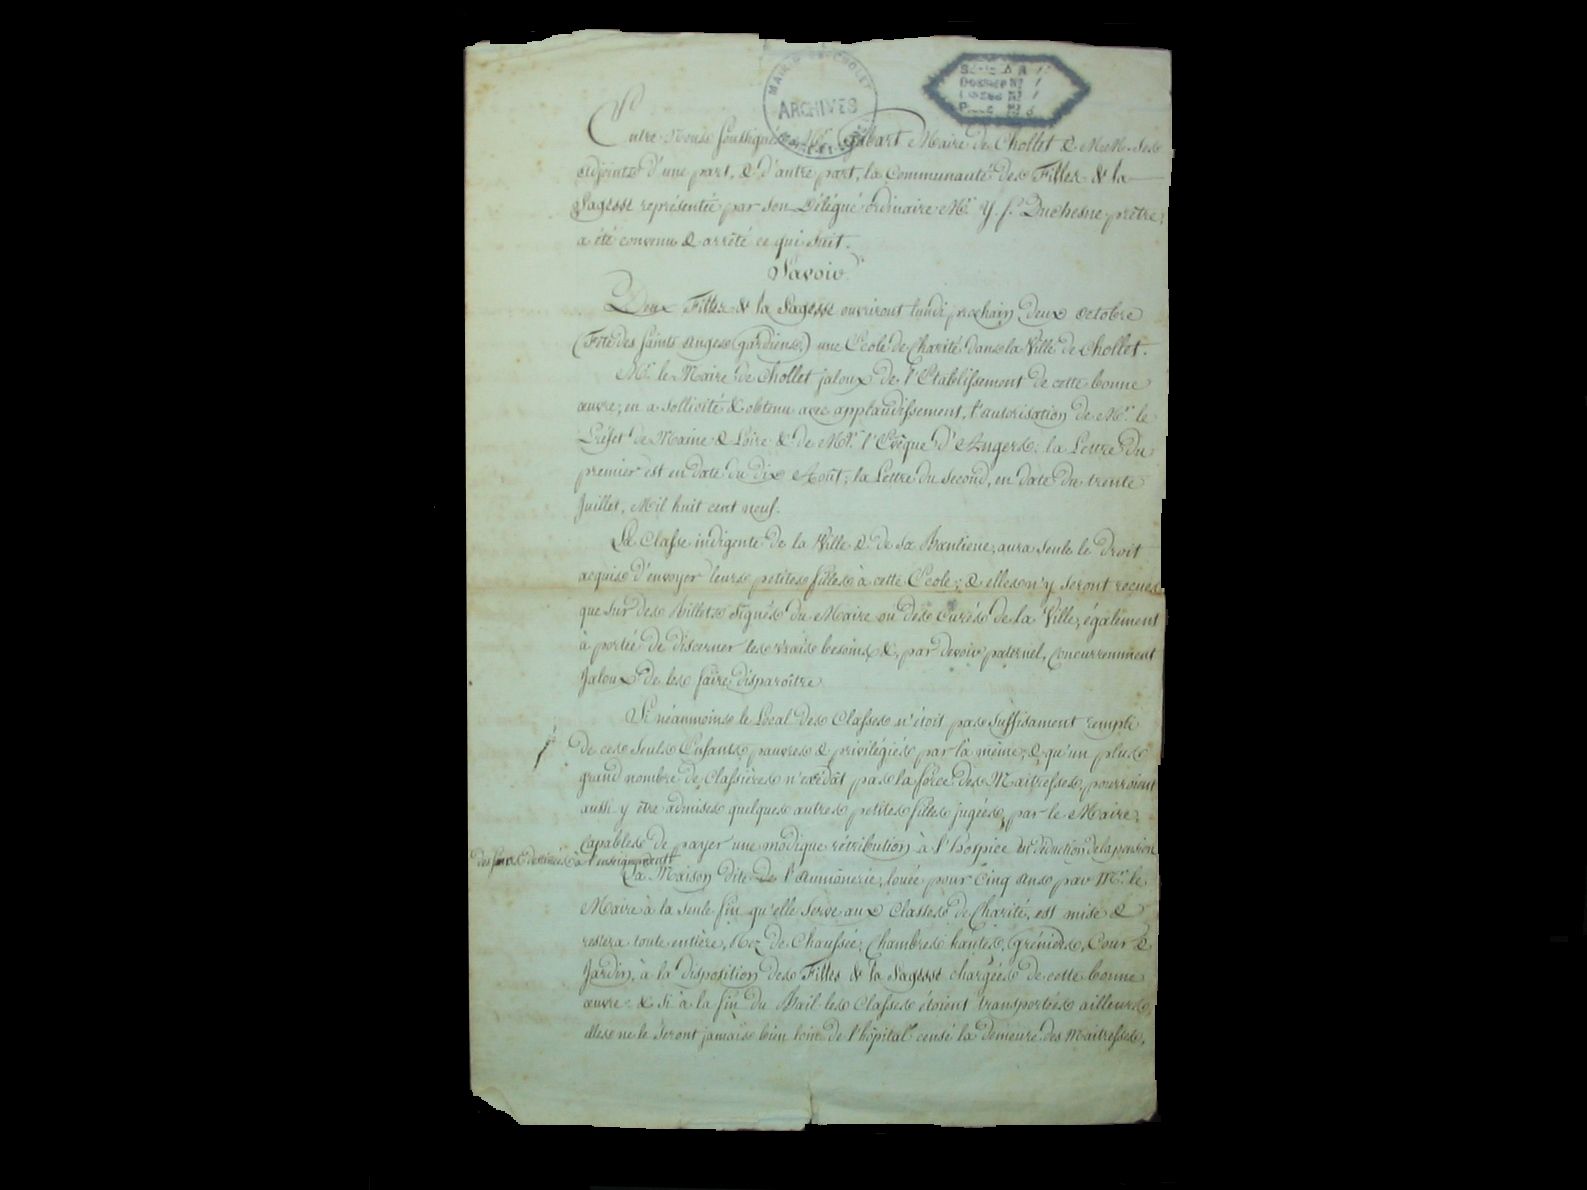 MAIRIE DE CHOLET
ARCHIVES
Série A R
Dossier N° 1
Liasse N° 1
Pièce N° 6
Entre Nous soussignés Mr. Maire de Chollet & MM. Ses
adjoints d'une part, & d'autre part, la Communauté des Filles & la
Sagesse représentée par son Délégué ordinaire Mr. Y. f. Duchesne prêtre;
a été convenu & arrêté ce qui Suit.
Savoir
Deux Filles & la Sagesse ouvriront lundi prochain Deux octobre
(Fête des saints Anges gardiens,) une Ecole de Charité dans la Ville de Chollet.
Mr. le Maire de Chollet jaloux de l'Etablissement de cette bonne
œuvre, en a Sollicité & obtenu avec applaudissement, l'autorisation de Mr. le
Préfet de Maine & Loire & de Mgr. l'Evêque d'Angers: la Lettre du
premier est en date du dix Août, la Lettre du Second, en date du trente
Juillet, Mil huit cent neuf.
La Classe indigente de la Ville & de Sa Banlieue, aura seule le droit
acquis d'envoyer leurs petites filles à cette Ecole; & elles n'y seront reçues
que sur des Billets Signés du Maire ou des Curés de la Ville, également
à portée de discerner les vrais besoins &, par devoir paternel, Concurremment
Jaloux de les faire disparoître
Si néanmoins le Local des Classes n'étoit pas Suffisament rempli
de ces Seuls Enfants pauvres & privilégiés par là même, & qu'un plus
grand nombre de Classières n'exédât pas la force des Maitresses, pourroient
aussi y être admises quelques autres petites filles jugées, par le Maire,
Capables de payer une modique rétribution à l'hospice en déduction de la pension
des sœurs destinées à l'enseignement
La Maison dite de l'Aumônerie, louée pour Cinq Ans par Mr. le
Maire à la seule fin qu'elle Serve aux Classes de Charité, est mise &
restera toute entière, Rez de Chaussée, Chambres hautes, Gréniers, Cour &
Jardin, à la disposition des Filles & la Sagesse chargées de cette bonne
œuvre & Si à la fin du Bail les Classes étoient transportées ailleurs,
elles ne le Seront jamais bien loin de l'hôpital censé la demeure des Maitresses,